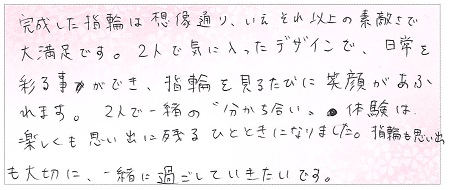 完成した指輪は想像通り、いえそれ以上の素敵さで
大満足です。2人で気に入ったデザインで、日常を
彩る事ができ、指輪を見るたびに笑顔があふ
れます。2人で一緒の"分かち合い"体験は
楽しくも思い出に残るひとときになりました。指輪も思い出
も大切に、一緒に過ごしていきたいです。